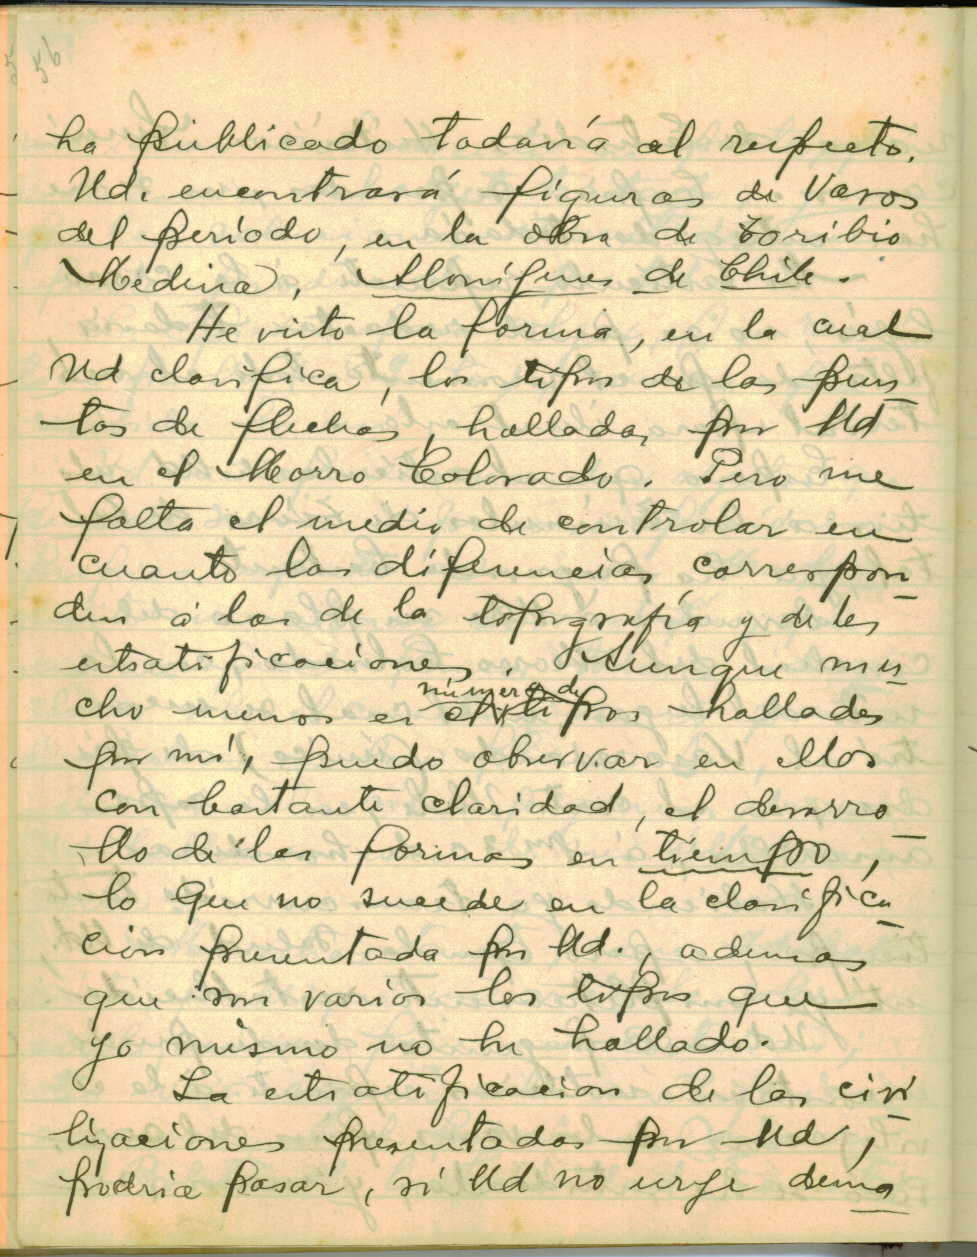 56
ha publicado todavía al respecto.
Ud. encontrará figuras de Vasos
del período, en la obra de Toribio
Medina, Aborígenes de Chile.
He visto la forma, en la cual
Ud clasifica, los tipos de las pun
tas de flechas, halladas por Ud
en el Morro Colorado. Pero me
falta el medio de controlar en
cuanto las diferencias correspon
den á las de la topografía y de las
estratificaciones. Aunque mu
cho menos es el número de tipos hallados
por mí, puedo observar en ellos
con bastante claridad, el desarro
llo de las formas en tiempo,
lo que no sucede en la clasifica
cion presentada por Ud., ademas
que son varios los tipos que
yo mismo no he hallado.
La estratificacion de las civi
lizaciones presentadas por Ud,
podria pasar, si Ud no urge dema